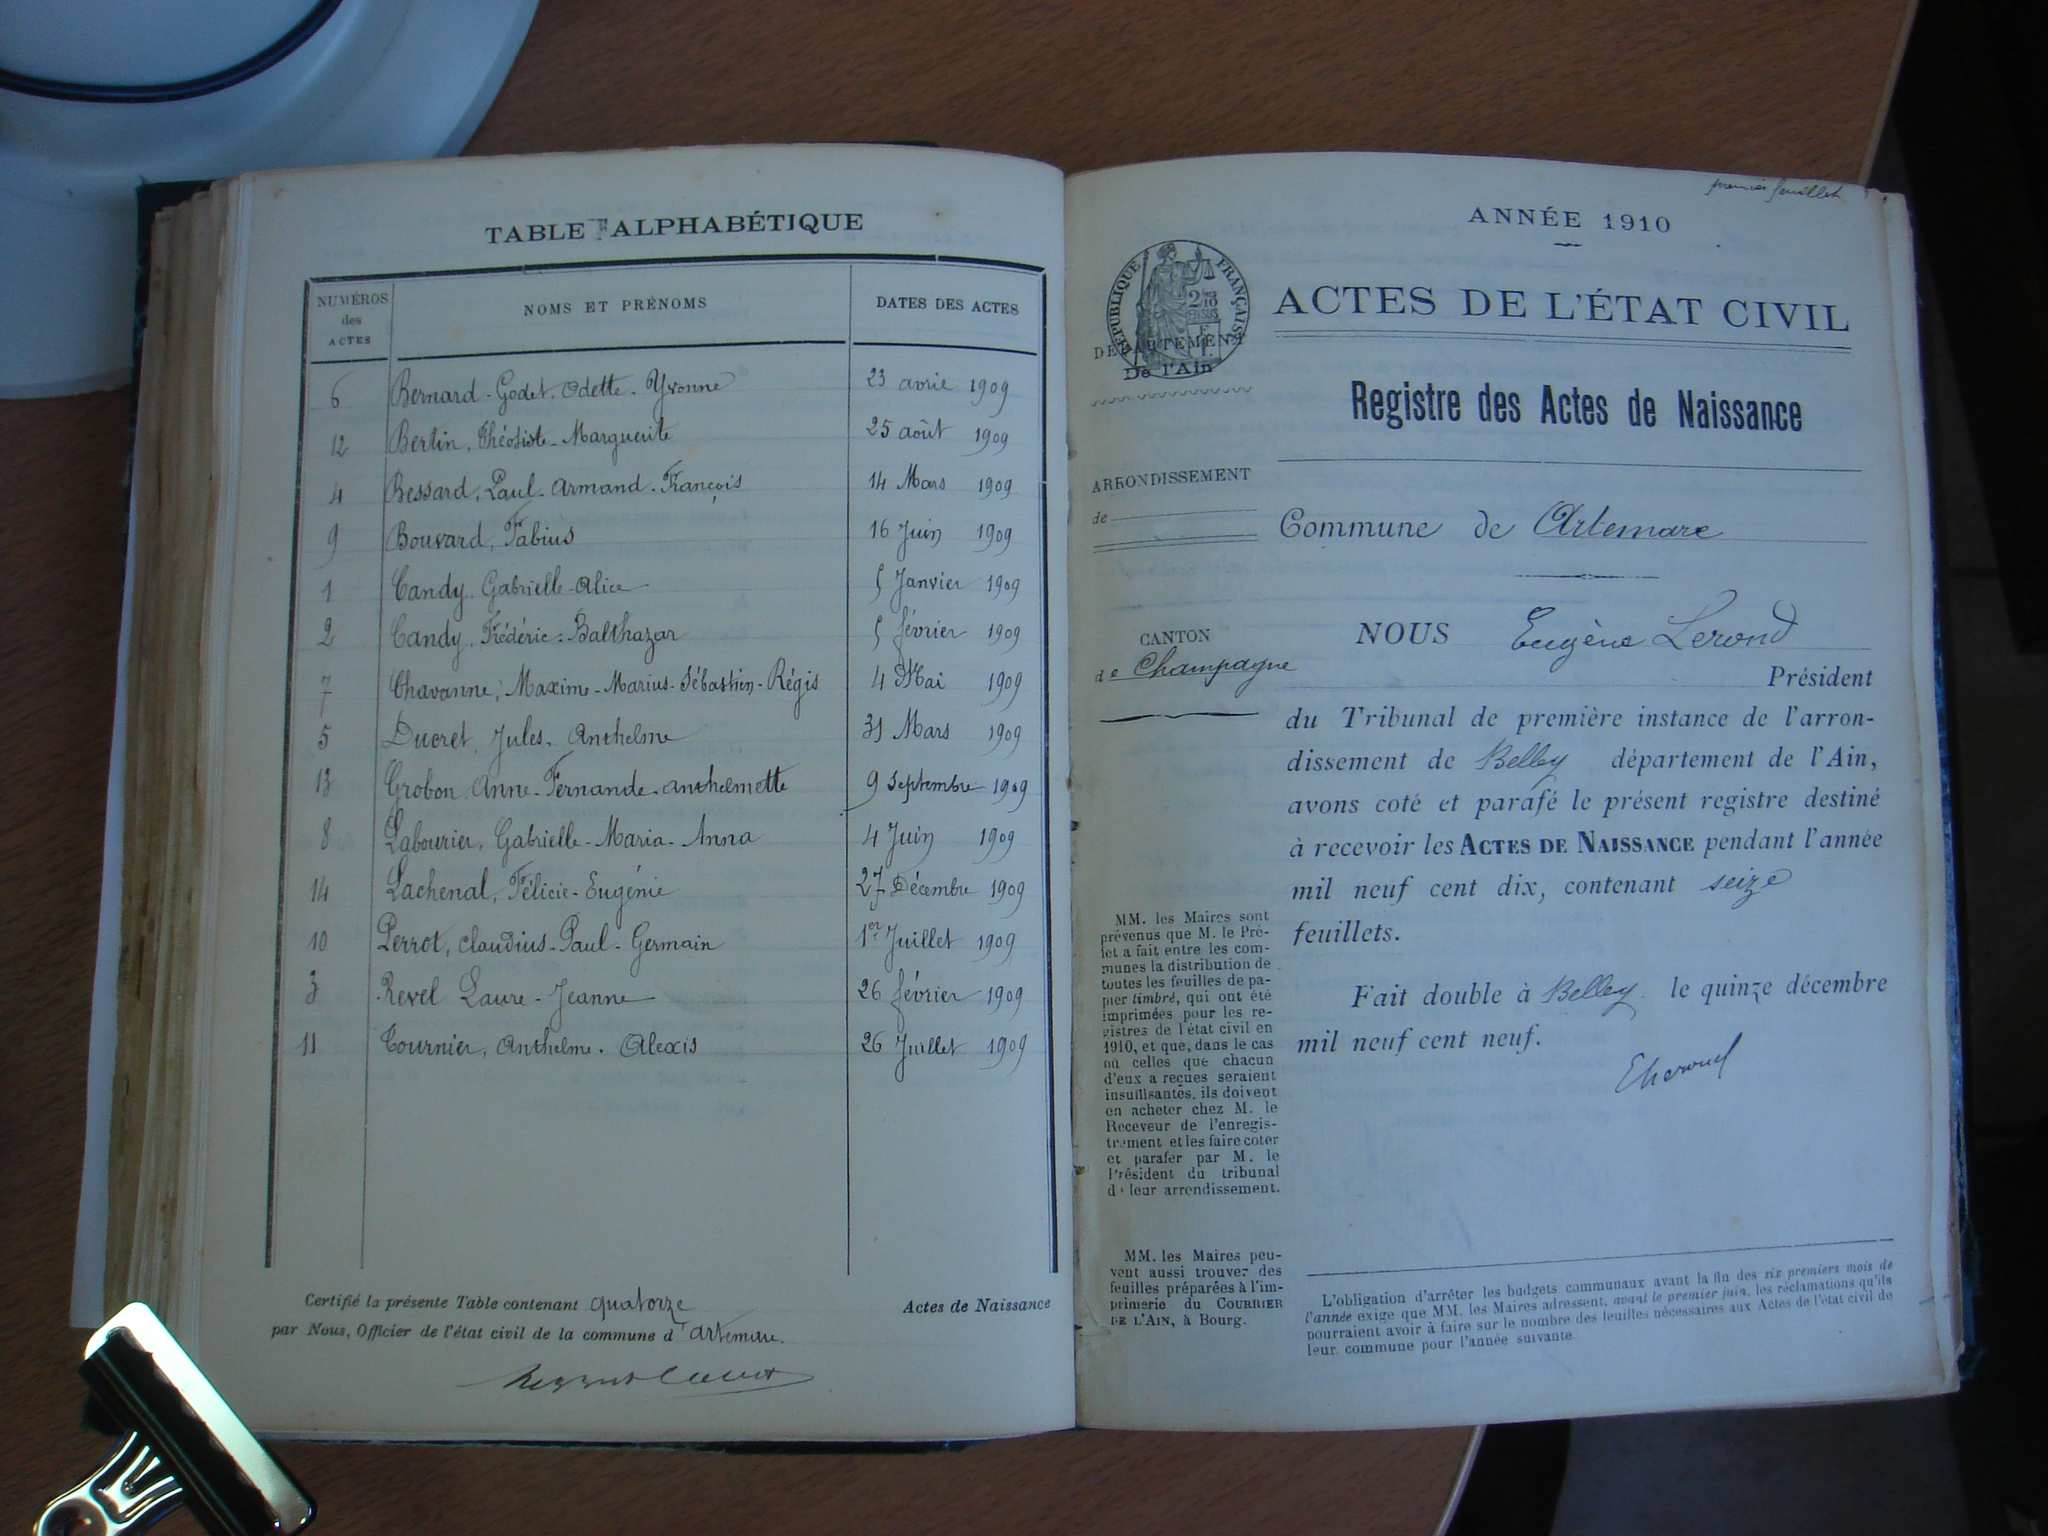 TABLE ALPHABÉTIQUE
NUMÉROS des ACTES NOMS ET PRÉNOMS DATES DES ACTES
6 Bernard-Godet. Odette. Yvonne 23 avril 1909
12 Bertin, Théotiste-Marguerite 25 août 1909
4 Bessard, Paul. Armand. François 14 Mars 1909
9 Bouvard, Fabius 16 Juin 1909
1 Candy. Gabrielle-Alice 5 Janvier 1909
2 Candy. Frédéric-Balthazar 5 février 1909
7 Chavanne, Maxime-Marius-Sébastien-Régis 4 Mai 1909
5 Ducret, Jules. Anthelme 31 Mars 1909
13 Grobon. Anne-Fernande. anthelmette 9 Septembre 1909
8 Labourier, Gabrielle-Maria-Anna 4 Juin 1909
14 Lachenal, Félicie-Eugénie 27 Décembre 1909
10 Perrot, Claudius-Paul-Germain 1er Juillet 1909
3 Revel Laure-Jeanne 26 février 1909
11 Tournier, Anthelme. Alexis 26 Juillet 1909
Certifié la présente Table contenant quatorze Actes de Naissance
par Nous, Officier de l'état civil de la commune d'artemare.
premier feuillet
ANNÉE 1910
RÉPUBLIQUE FRANÇAISE
ACTES DE L'ÉTAT CIVIL
DÉPARTEMENT
De l'Ain
Registre des Actes de Naissance
ARRONDISSEMENT
de
Commune de Artemare
CANTON
de Champagne
NOUS Eugène Lerond
Président
du Tribunal de première instance de l'arron-
dissement de Belley département de l'Ain,
avons coté et parafé le présent registre destiné
à recevoir les ACTES DE NAISSANCE pendant l'année
mil neuf cent dix, contenant seize
feuillets.
Fait double à Belley. le quinze décembre
mil neuf cent neuf.
MM. les Maires sont
prévenus que M. le Pré-
fet a fait entre les com-
munes la distribution de
toutes les feuilles de pa-
pier timbré, qui ont été
imprimées pour les re-
gistres de l'état civil en
1910, et que, dans le cas
où celles que chacun
d'eux a reçues seraient
insuffisantes, ils doivent
en acheter chez M. le
Receveur de l'enregis-
trement et les faire coter
et parafer par M. le
Président du tribunal
de leur arrondissement.
MM. les Maires peu-
vent aussi trouver des
feuilles préparées à l'im-
primerie du COURRIER
DE L'AIN, à Bourg.
L'obligation d'arrêter les budgets communaux avant la fin des six premiers mois de
l'année exige que MM. les Maires adressent, avant le premier juin, les réclamations qu'ils
pourraient avoir à faire sur le nombre des feuilles nécessaires aux Actes de l'état civil de
leur commune pour l'année suivante